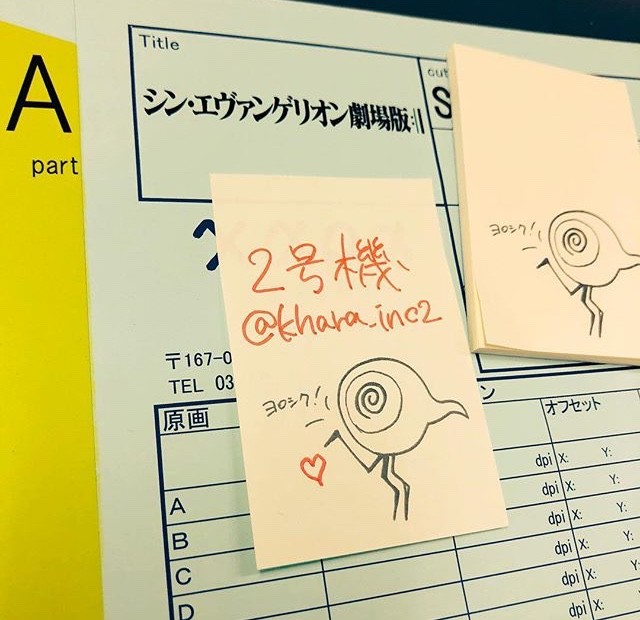 A
part
Title
シン・エヴァンゲリオン劇場版:||
cut
S
2号機
@khara_inc2
ヨロシク!
ヨロシク!
〒167-0
TEL 03
原画
オフセット
dpi X: Y:
A
dpi X: Y:
B
dpi X: Y:
C
dpi X: Y:
D